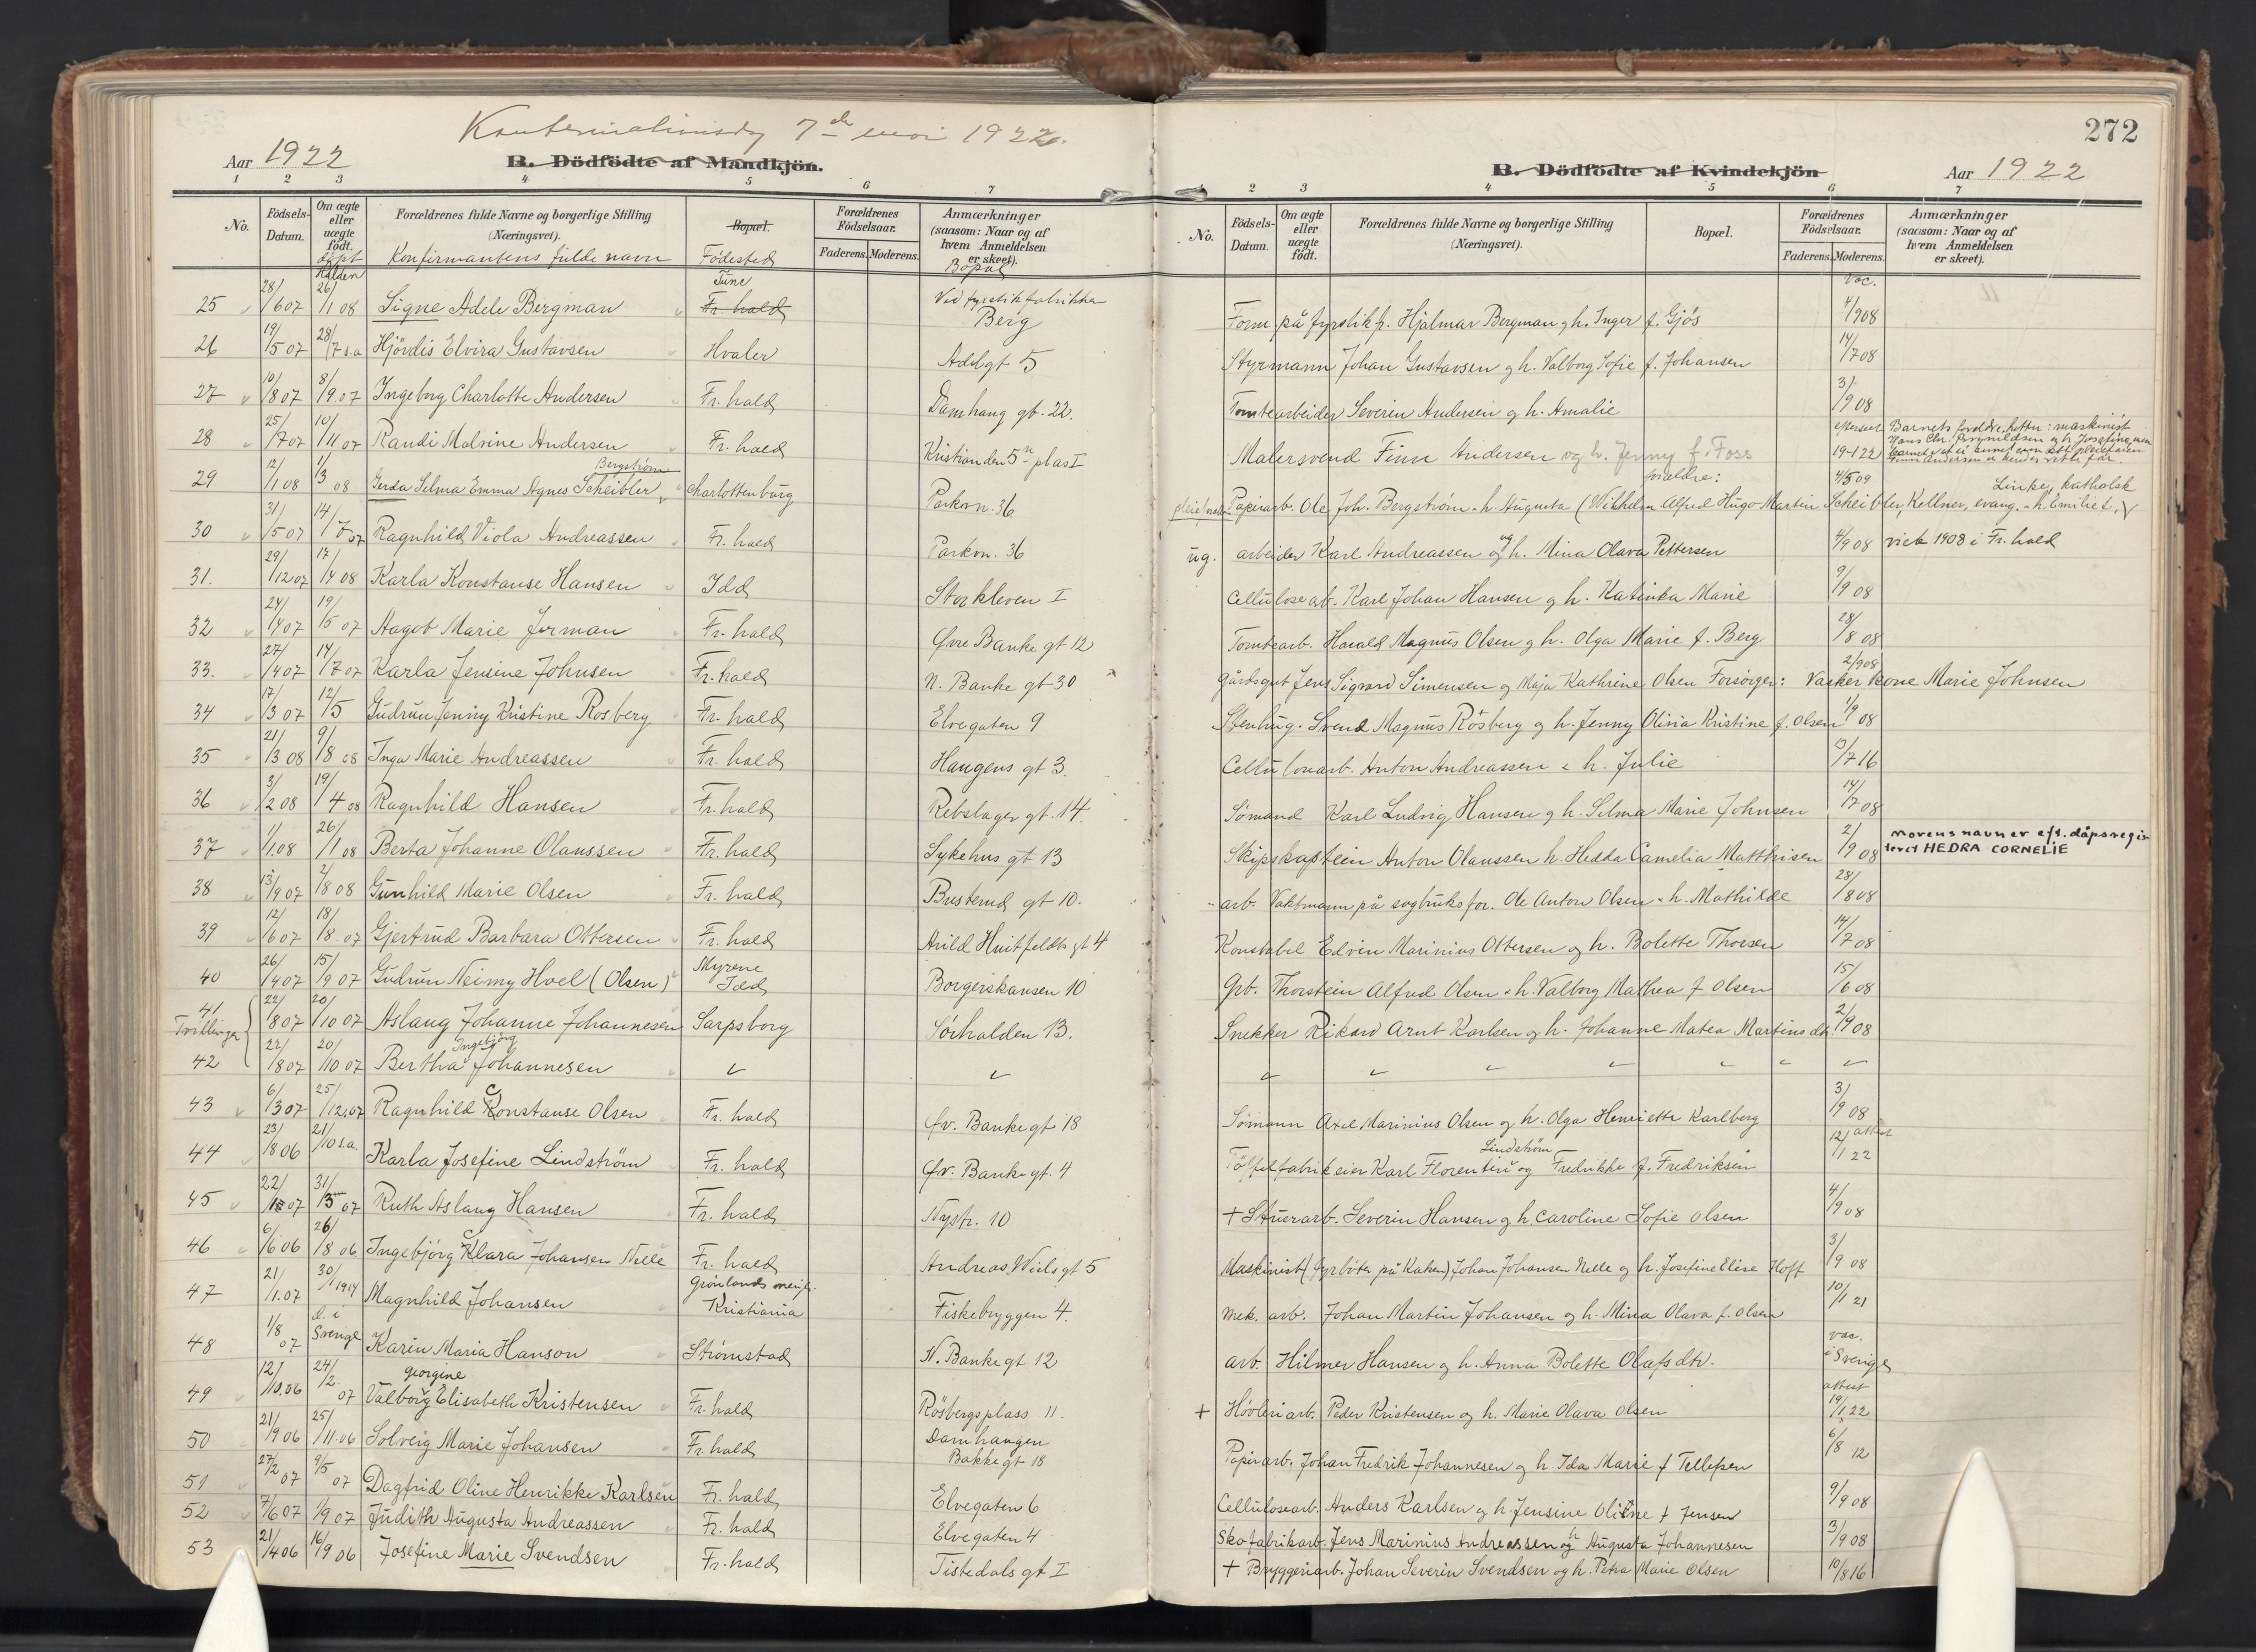 Konfirmationsdag 7de mai 1922.
272
Aar 1922
B. Dödfödte af Mandkjön.
1 2 3 4 5 6 7
No.
Födsels-Datum.
Om ægte eller uægte födt.
döpt
Forældrenes fulde Navne og borgerlige Stilling (Næringsvei).
Konfirmantens fulde navn
Bopæl.
Födested
Forældrenes Födselsaar.
Faderens. Moderens.
Anmærkninger (saasom: Naar og af hvem Anmeldelsen er skeet).
Bopæl
25 28/6 07 Halden 26/1 08 Signe Adele Bergman Tune Fr. hald Ved fyrstikfabrikken Berg
26 19/5 07 28/7 s.a Hjördis Elvira Gustavsen Hvaler Adelgt 5
27 10/8 07 8/9.07 Ingeborg Charlotte Andersen Fr. hald Damhaug gt. 22.
28 25/7 07 10/11 07 Randi Malvine Andersen Fr. hald Kristian den 5te plas I
29 12/1 08 1/3 08 Gerda Selma Emma Agnes Scheibler Bergström Charlottenburg Parkvn. 36
30 31/5 07 14/7 07 Ragnhild Viola Andreassen Fr. hald Parkvn. 36
31. 29/12 07 17/4 08 Karla Konstanse Hansen Idd Storkleven I
32 24/4 07 19/5 07 Aagot Marie Jerman Fr. hald Øvre Banke gt 12
33. 27/4 07 14/7 07 Karla Jensine Johnsen Fr. hald N. Banke gt 30
34 17/3 07 12/5 Gudrun Jenny Kristine Rosberg Fr. hald Elvegaten 9
35 21/3 08 9/8 08 Inga Marie Andreassen Fr. hald Haugens gt 3.
36 3/2 08 19/4 08 Ragnhild Hansen Fr. hald Rebslager gt. 14.
37 1/1.08 26/1 08 Berta Johanne Olaussen Fr. hald Sykehus gt 13
38 13/9 07 2/8 08 Gunhild Marie Olsen Fr. hald Busterud gt 10.
39 12/6 07 18/8.07 Gjertrud Barbara Ottersen Fr. hald Arild Huitfeldts gt 4
40 26/4 07 15/9 07 Gudrun Neimy Hoel (Olsen) Myrene Idd Borgerskansen 10
41 Tvillinger 22/8 07 20/10 07 Aslaug Johanne Johannesen Sarpsborg Sörhalden 13.
42 22/8 07 20/10 07 Bertha Ingebjörg Johannesen
43 6/3 07 25/12.07 Ragnhild Constanse Olsen Fr. hald Øv. Banke gt 18
44 23/8 06 21/10 s.a. Karla Josefine Lindström Fr. hald Øv. Banke gt. 4
45 22/ 07 31/ 07 Ruth Aslaug Hansen Fr. hald Nystr. 10
46 6/6 06 26/8 06 Ingebjörg Clara Johansen Nelle Fr. hald Andreas Wiels gt 5
47 21/1.07 30/1 1914 Magnhild Johansen Grönlands menigh. Kristiania Fiskebryggen 4.
48 1/8 07 d. i Sverige Karin Maria Hanson Strömstad N. Banke gt 12
49 12/10.06 24/2 07 Valborg georgine Elisabeth Kristensen Fr. hald Rösbergsplass 11.
50 21/9 06 25/11.06 Solveig Marie Johansen Fr. hald Damhaugen Bakke gt 18
51 27/2 07 9/5 07 Dagfrid Oline Henrikke Karlsen Fr. hald Elvegaten 6
52 7/6 07 1/9 07 Judith Augusta Andreassen Fr. hald Elvegaten 4
53 21/4 06 16/9 06 Josefine Marie Svendsen Fr. hald Tistedals gt I
B. Dödfödte af Kvindekjön
Aar 1922
2 3 4 5 6 7
No.
Födsels-Datum.
Om ægte eller uægte födt.
Forældrenes fulde Navne og borgerlige Stilling (Næringsvei).
Bopæl.
Forældrenes Födselsaar.
Faderens. Moderens.
Anmærkninger (saasom: Naar og af hvem Anmeldelsen er skeet).
Vac.
Form på fyrstikf. Hjalmar Bergman og h. Inger f. Gjös 4/9 08
Styrmann Johan Gustavsen og h. Valborg Sofie f. Johansen 14/7 08
Tomtearbeider Severin Andersen og h. Amalie 3/9 08
Malersvend Finn Andersen og h. Jenny f. Foss 19-1 22
Barnets foreldre hetter: maskinist
foreldre: 4/5 09 Linke, katholsk
pleiefor. Papirarb. Ole Joh. Bergström h. Augusta (Wilhelm Alfred Hugo Martin Scheibler, Kellner, evang. h. Emilie f.
ug. arbeider Karl Andreassen og h. Mina Olava Pettersen 4/9 08 viet 1908 i Fr. hald
Cellulosearb. Karl Johan Hansen og h. Katinka Marie 9/9 08
Tomtearb. Harald Magnus Olsen og h. Olga Marie f. Berg 28/8 08
Gårdsgut Jens Sigvard Simensen og Maja Kathrine Olsen Forsörger: Vaskerkone Marie Johnsen 2/9 08
Stenhug. Svend Magnus Rösberg og h. Jenny Olivia Kristine f. Olsen 1/9 08
Cellulosarb. Anton Andreassen & h. Julie 13/7 16
Sömand Karl Ludvig Hansen og h. Selma Marie Johnsen 14/7 08
Skipskaptein Anton Olaussen h. Hedda Camelia Matthisen 2/9 08 Morens navn er eft. dåpsregisteret HEDRA CORNELIE
arb. Vaktmann på sagbruksfor. Ole Anton Olsen & h. Mathilde 28/8 08
Konstabel Edvin Marinius Ottersen og h. Bolette Thorsen 14/7 08
Grb. Thorstein Alfred Olsen & h. Valborg Mathea f Olsen 15/6 08
Snekker Rikard Arnt Karlsen og h. Johanne Matea Martinsdtr 2/9 08
Sömann Axel Marinius Olsen og h. Olga Henriette Karlberg 3/9 08
Töffelfabrikeier Karl Florentin Lindström og Fredrikke f. Fredriksen 12/1 22 attest
+ Stuerarb. Severin Hansen og h Caroline Sofie Olsen 4/9 08
Maskinist (fyrböter på Kahen) Johan Johansen Nelle og h. Josefine Elise Hoff 3/9 08
Mek. arb. Johan Martin Johansen og h. Mina Olava f. Olsen 10/1 21
arb. Hilmer Hansen og h. Anna Bolette Olafsdtr. vac. i Sverige
+ Hövleriarb. Peder Kristensen og h. Marie Olava Olsen attest 19/1 22
Papirarb. Johan Fredrik Johannesen og h. Ida Marie f Tellefsen 6/8 12
Cellulosearb. Anders Karlsen og h. Jensine Oline f Jensen 9/9 08
Skofabrikarb. Jens Marinius Andreassen og h Augusta Johannesen 3/9 08
+ Bryggeriarb. Johan Severin Svendsen og h. Petra Marie Olsen 10/8 16